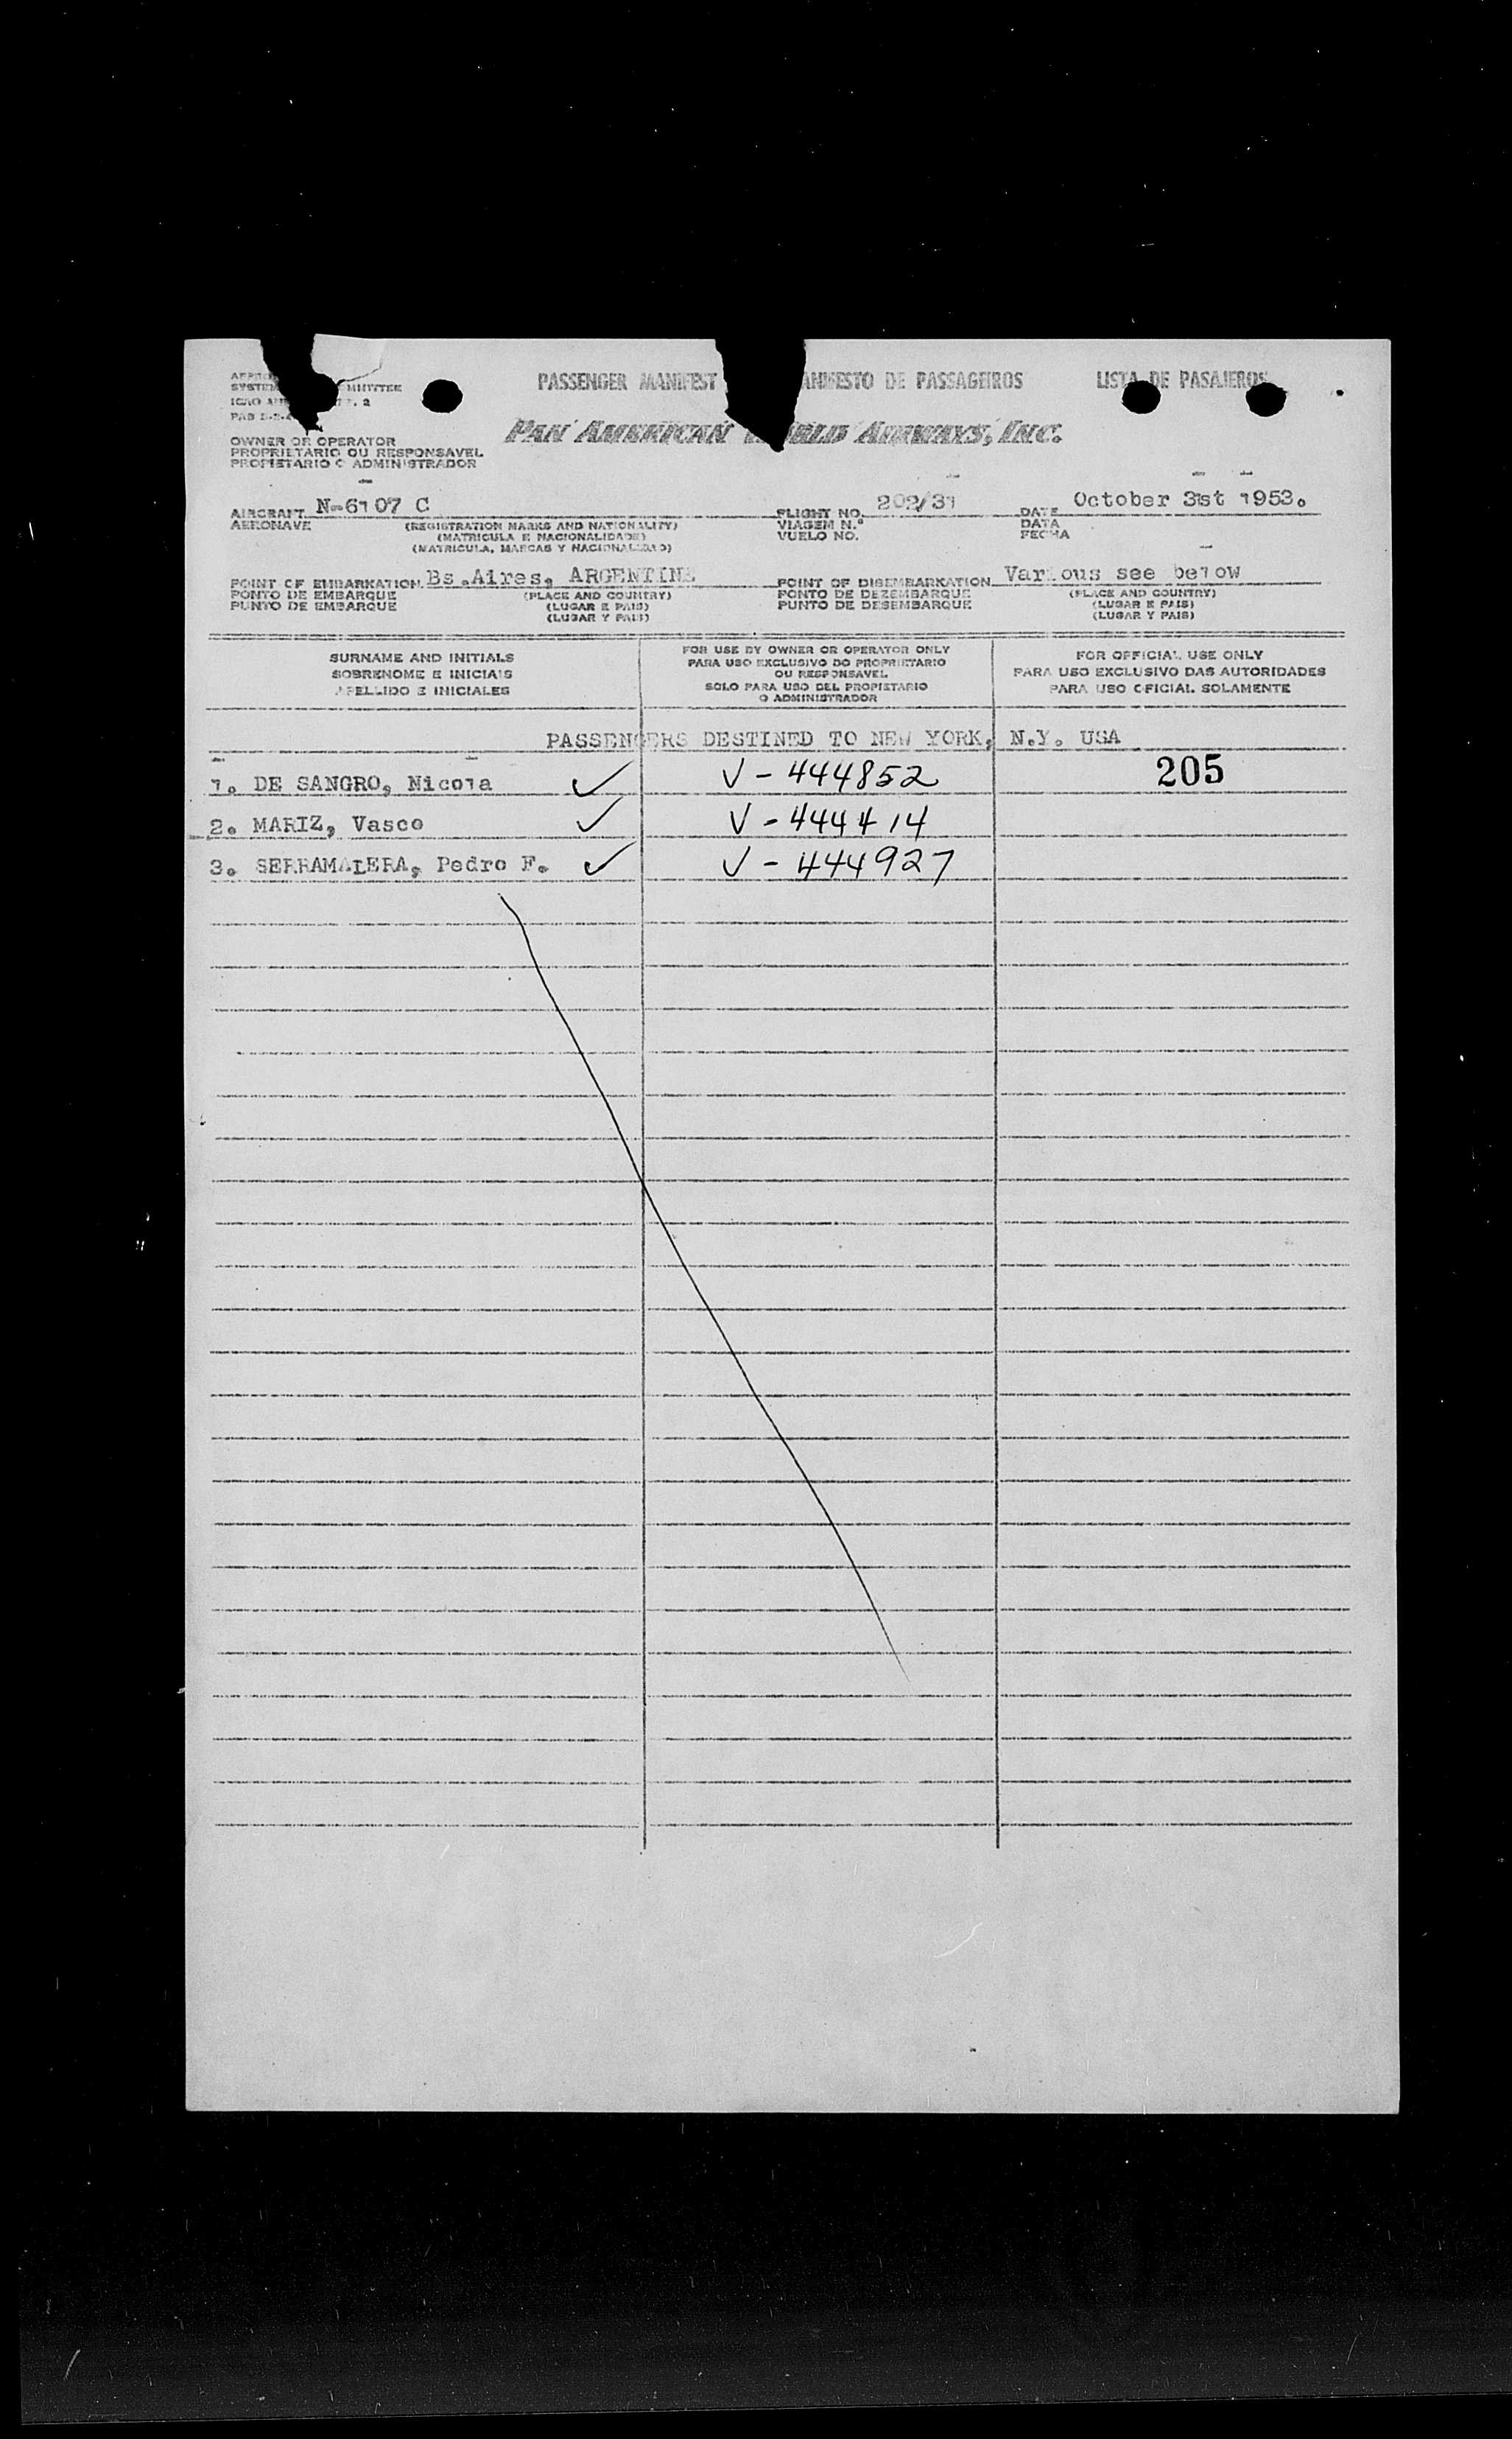 PASSENGER MANIFEST ANIFESTO DE PASSAGEIROS LISTA DE PASAJEROS
PAN AMERICAN AIRWAYS, INC.
OWNER OR OPERATOR
PROPRIETARIO OU RESPONSAVEL
PROPIETARIO O ADMINISTRADOR
AIRCRAFT N-6107 C FLIGHT NO. 202/31 DATE October 31st 1953.
AERONAVE (REGISTRATION MARKS AND NATIONALITY) VIAGEM N.º DATA
(MATRICULA E NACIONALIDADE) VUELO NO. FECHA
(MATRICULA, MARCAS Y NACIONALIDAD)
POINT OF EMBARKATION Bs.Aires, ARGENTINE POINT OF DISEMBARKATION Various see below
PONTO DE EMBARQUE (PLACE AND COUNTRY) PONTO DE DEZEMBARQUE (PLACE AND COUNTRY)
PUNTO DE EMBARQUE (LUGAR E PAIS) PUNTO DE DESEMBARQUE (LUGAR E PAIS)
(LUGAR Y PAIS) (LUGAR Y PAIS)
SURNAME AND INITIALS
SOBRENOME E INICIAIS
APELLIDO E INICIALES
FOR USE BY OWNER OR OPERATOR ONLY
PARA USO EXCLUSIVO DO PROPRIETARIO
OU RESPONSAVEL
SOLO PARA USO DEL PROPIETARIO
O ADMINISTRADOR
FOR OFFICIAL USE ONLY
PARA USO EXCLUSIVO DAS AUTORIDADES
PARA USO OFICIAL SOLAMENTE
PASSENGERS DESTINED TO NEW YORK, N.Y. USA
1. DE SANGRO, Nicola ✓ V-444852 205
2. MARIZ, Vasco ✓ V-444414
3. SERRAMALERA, Pedro F. ✓ V-444927